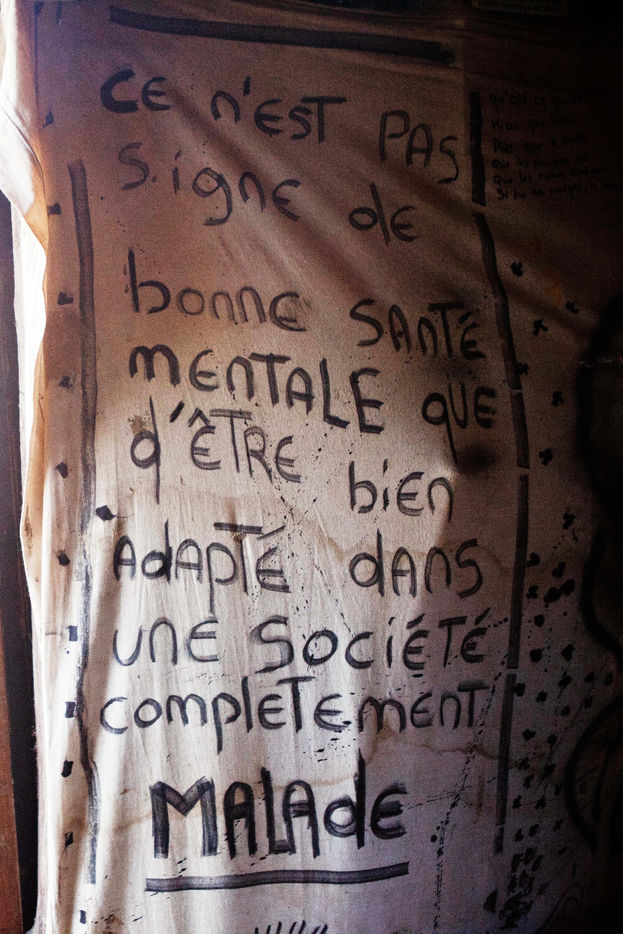 CE n'EST PAS
Signe de
bonne SANTÉ
MENTALE QUE
d'ÊTRE bien
AdAPTÉ dans
UNE SOCIÉTÉ
complETEmENT
MALAdE
qu'est ce qui
que les